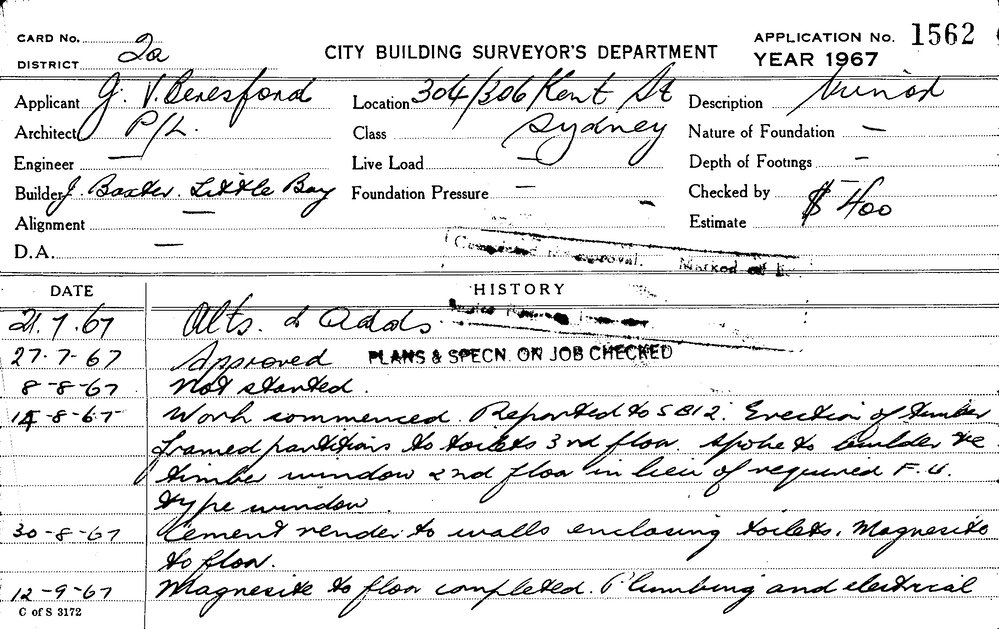 CARD No. 2a
DISTRICT
CITY BUILDING SURVEYOR'S DEPARTMENT
APPLICATION No. 1562
YEAR 1967
Applicant J. V. Beresford
Location 304/306 Kent St
Description Minor
Architect P/L.
Class Sydney
Nature of Foundation —
Engineer —
Live Load —
Depth of Footings —
Builder J. Baxter. Little Bay
Foundation Pressure —
Checked by
Alignment —
Estimate $400
D.A. —
Marked off
DATE HISTORY
21.7.67 Alts. & Adds.
27-7-67 Approved PLANS & SPECN. ON JOB CHECKED
8-8-67 Not started.
14-8-67 Work commenced. Reported to SBI2. Erection of timber
framed partitions to toilets 3rd floor. Spoke to builder re
timber window 2nd floor in lieu of required F.U.
type window.
30-8-67 Cement render to walls enclosing toilets. Magnesite
to floor.
12-9-67 Magnesite to floor completed. Plumbing and electrical
C of S 3172